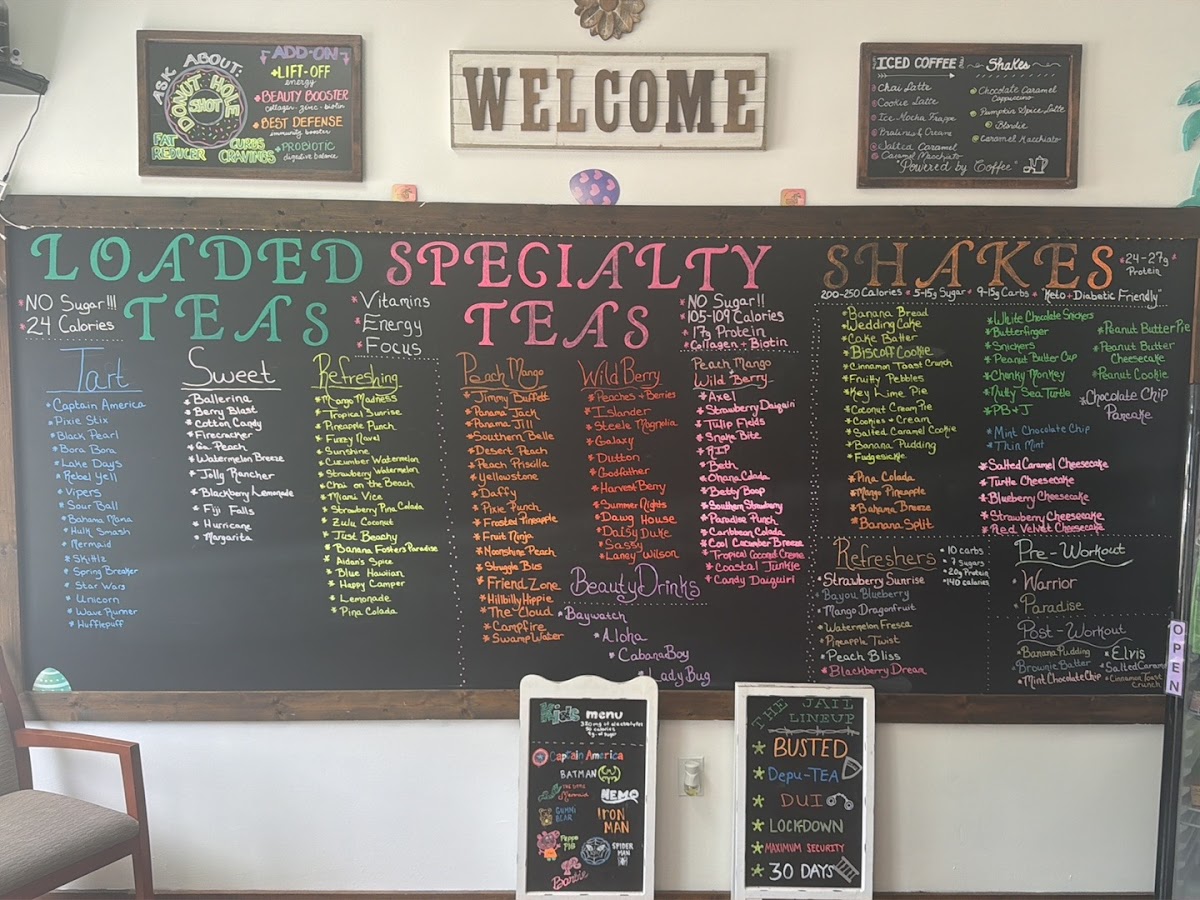 ASK ABOUT:
DONUT HOLE
SHOT
FAT
REDUCER
CURBS
CRAVINGS
ADD-ON
LIFT-OFF
energy
BEAUTY BOOSTER
collagen - zinc - biotin
BEST DEFENSE
immunity booster
PROBIOTIC
digestive balance
WELCOME
ICED COFFEE
Shakes
Chai Latte
Cookie Latte
Ice Mocha Frappe
Pralines & Cream
Salted Caramel
Caramel Macchiato
Chocolate Caramel
Cappuccino
Pumpkin Spice Latte
Blondie
Caramel Macchiato
"Powered by Coffee"
LOADED
TEAS
*NO Sugar!!!
*24 Calories
*Vitamins
*Energy
*Focus
Tart
*Captain America
*Pixie Stix
*Black Pearl
*Bora Bora
*Lake Days
*Rebel Yell
*Vipers
*Sour Ball
*Bahama Mama
*Hulk Smash
*Mermaid
*Skittlz
*Spring Breaker
*Star Wars
*Unicorn
*Wave Runner
*Hufflepuff
Sweet
*Ballerina
*Berry Blast
*Cotton Candy
*Firecracker
*Ga Peach
*Watermelon Breeze
*Jolly Rancher
*Blackberry Lemonade
*Fiji Falls
*Hurricane
*Margarita
Refreshing
*Mango Madness
*Tropical Sunrise
*Pineapple Punch
*Fuzzy Navel
*Sunshine
*Cucumber Watermelon
*Strawberry Watermelon
*Chai on the Beach
*Miami Vice
*Strawberry Pina Colada
*Zulu Coconut
*Just Beachy
*Banana Fosters Paradise
*Aidan's Spice
*Blue Hawiian
*Happy Camper
*Lemonade
*Pina Colada
SPECIALTY
TEAS
*NO Sugar!!
*105-109 Calories
*17g Protein
*Collagen + Biotin
Peach Mango
*Jimmy Buffett
*Panama Jack
*Panama Jill
*Southern Belle
*Desert Peach
*Peach Priscilla
*Yellowstone
*Daffy
*Pixie Punch
*Frosted Pineapple
*Fruit Ninja
*Moonshine Peach
*Struggle Bus
*Friend Zone
*Hillbilly Hippie
*The Cloud
*Campfire
*Swamp Water
Wild Berry
*Peaches + Berries
*Islander
*Steele Magnolia
*Galaxy
*Dutton
*Godfather
*Harvest Berry
*Summer Nights
*Dawg House
*Daisy Duke
*Sassy
*Laney Wilson
Peach Mango
+
Wild Berry
*Axel
*Strawberry Daiquiri
*Tulip Fields
*Snake Bite
*RIP
*Beth
*Ohana Colada
*Betty Boop
*Southern Strawberry
*Paradise Punch
*Caribbean Colada
*Cool Cucumber Breeze
*Tropical Coconut Creme
*Coastal Junkie
*Candy Daiquiri
Beauty Drinks
*Baywatch
*Aloha
*Cabana Boy
*Lady Bug
SHAKES
*24-27g*
Protein
200-250 Calories * 5-15g Sugar * 9-15g Carbs * "Keto + Diabetic Friendly"
*Banana Bread
*Wedding Cake
*Cake Batter
*Biscoff Cookie
*Cinnamon Toast Crunch
*Fruity Pebbles
*Key Lime Pie
*Coconut Cream Pie
*Cookies + Cream
*Salted Caramel Cookie
*Banana Pudding
*Fudgesickle
*Pina Colada
*Mango Pineapple
*Bahama Breeze
*Banana Split
*White Chocolate Snickers
*Butterfinger
*Snickers
*Peanut Butter Cup
*Chunky Monkey
*Nutty Sea Turtle
*PB+J
*Mint Chocolate Chip
*Thin Mint
*Salted Caramel Cheesecake
*Turtle Cheesecake
*Blueberry Cheesecake
*Strawberry Cheesecake
*Red Velvet Cheesecake
*Peanut Butter Pie
*Peanut Butter
Cheesecake
*Peanut Cookie
*Chocolate Chip
Pancake
Refreshers
*10 carbs
*7 sugars
*20g Protein
*140 calories
*Strawberry Sunrise
*Bayou Blueberry
*Mango Dragonfruit
*Watermelon Fresca
*Pineapple Twist
*Peach Bliss
*Blackberry Dream
Pre-Workout
*Warrior
*Paradise
Post-Workout
*Banana Pudding
*Brownie Batter
*Mint Chocolate Chip
*Elvis
*Salted Caramel
*Cinnamon Toast
Crunch
OPEN
Kids menu
Captain America
BATMAN
THE LITTLE
Mermaid
NEMO
GUMMI
BEAR
IRON
MAN
Peppa
Pig
SPIDER
MAN
Barbie
THE JAIL
LINEUP
*BUSTED
*Depu-TEA
*DUI
*LOCKDOWN
*MAXIMUM SECURITY
*30 DAYS